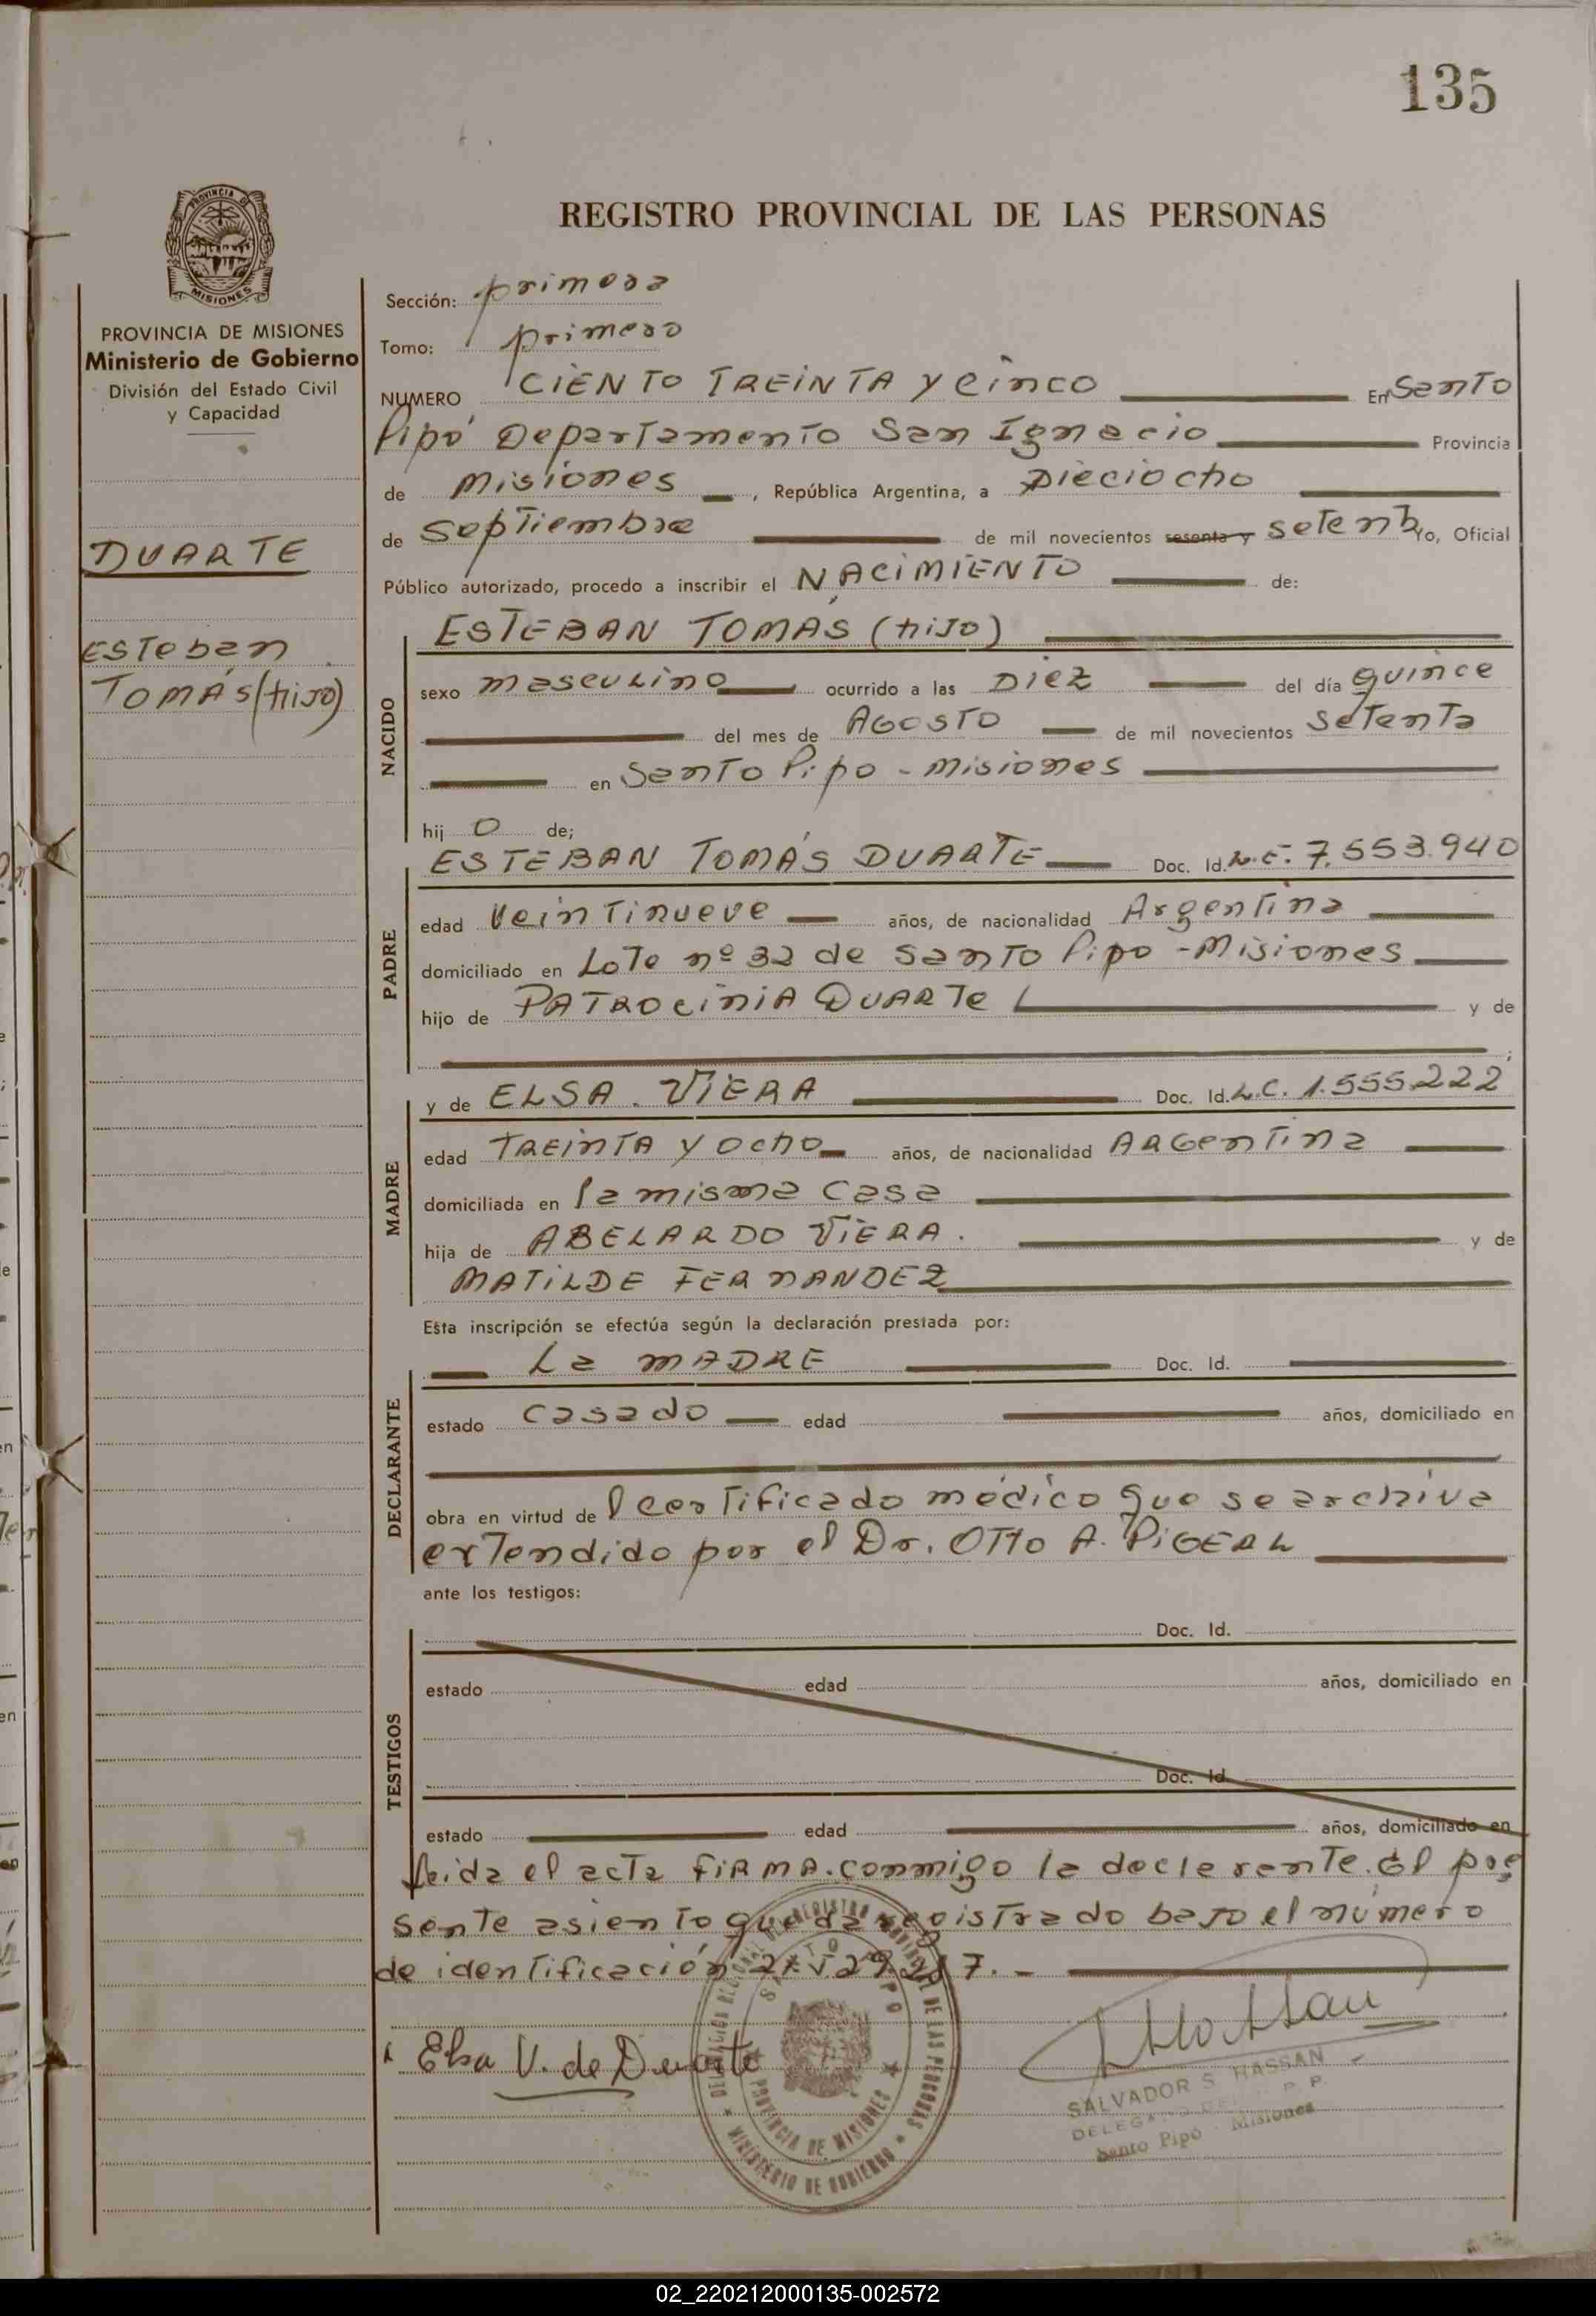 135
REGISTRO PROVINCIAL DE LAS PERSONAS
PROVINCIA DE MISIONES
PROVINCIA DE MISIONES
Ministerio de Gobierno
División del Estado Civil
y Capacidad
DUARTE
Esteban
TOMÁS (hijo)
Sección: primera
Tomo: primero
NUMERO CIENTO TREINTA y cinco En Santo
Pipó Departamento San Ignacio Provincia
de Misiones, República Argentina, a Dieciocho
de Septiembre de mil novecientos sesenta y setenta Yo, Oficial
Público autorizado, procedo a inscribir el NACIMIENTO de:
NACIDO
ESTEBAN TOMÁS (hijo)
sexo masculino ocurrido a las Diez del día quince
del mes de AGOSTO de mil novecientos setenta
en Santo Pipo - Misiones
hij o de;
PADRE
ESTEBAN TOMÁS DUARTE Doc. Id. L.E. 7.553.940
edad veintinueve años, de nacionalidad Argentina
domiciliado en Lote nº 32 de Santo Pipo - Misiones
hijo de PATROCINIA DUARTE y de
;
MADRE
y de ELSA VIERA Doc. Id. L.C. 1.555.222
edad TREINTA y ocho años, de nacionalidad ARGentina
domiciliada en la misma casa
hija de ABELARDO VIERA. y de
MATILDE FERNANDEZ
Esta inscripción se efectúa según la declaración prestada por:
DECLARANTE
La MADRE Doc. Id.
estado casado edad años, domiciliado en
obra en virtud de l certificado médico que se archiva
extendido por el Dr. OTTO A.
ante los testigos:
TESTIGOS
Doc. Id.
estado edad años, domiciliado en
Doc. Id.
estado edad años, domiciliado en
leida el acta FIRMA conmigo la declarante. el pre
sente asiento queda registrado bajo el número
de identificación
Elsa V. de Duarte
REGISTRO PROVINCIAL DE LAS PERSONAS
SANTO PIPO
PROVINCIA DE MISIONES
MINISTERIO DE GOBIERNO
SALVADOR S. HASSAN
Santo Pipó Misiones
02_220212000135-002572